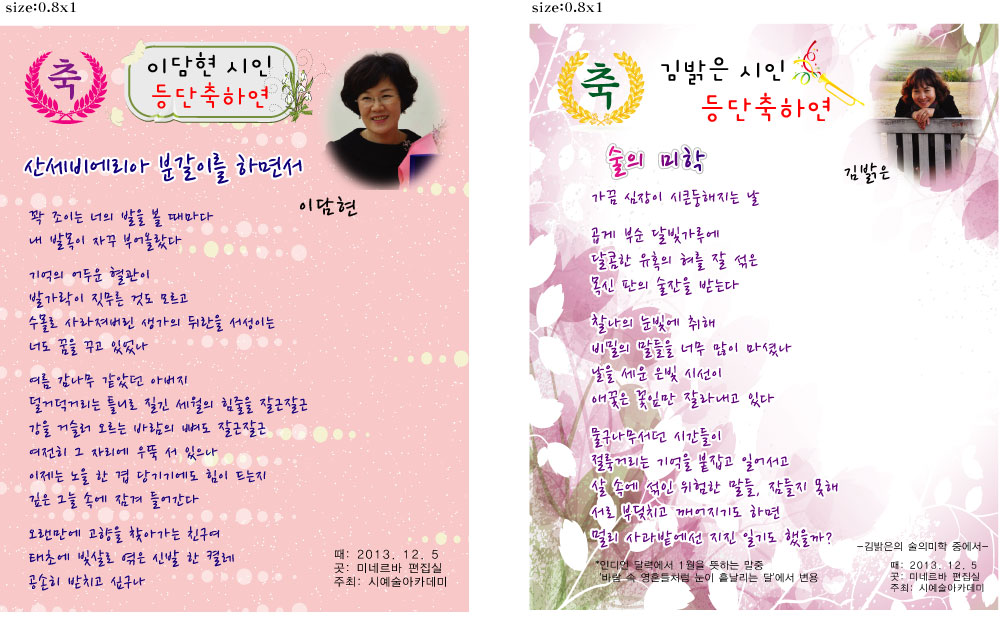 size:0.8x1
축
이담현 시인
등단축하연
산세비에리아 분갈이를 하면서
이담현
꽉 조이는 너의 발을 볼 때마다
내 발목이 자꾸 부어올랐다
기억의 어두운 혈관이
발가락이 짓무른 것도 모르고
수몰로 사라져버린 생가의 뒤란을 서성이는
너도 꿈을 꾸고 있었나
여름 감나무 같았던 아버지
덜거덕거리는 틀니로 질긴 세월의 힘줄을 잘근잘근
강을 거슬러 오르는 바람의 뼈도 잘근잘근
여전히 그 자리에 우뚝 서 있으나
이제는 노을 한 겹 당기기에도 힘이 드는지
깊은 그늘 속에 잠겨 들어간다
오랜만에 고향을 찾아가는 친구여
태초에 빛살로 엮은 신발 한 켤레
공손히 받치고 섰구나
때: 2013. 12. 5
곳: 미네르바 편집실
주최: 시예술아카데미
size:0.8x1
축
김밝은 시인
등단축하연
술의 미학
김밝은
가끔 심장이 시큰둥해지는 날
곱게 부순 달빛가루에
달콤한 유혹의 혀를 잘 섞은
목신 판의 술잔을 받는다
찰나의 눈빛에 취해
비밀의 말들을 너무 많이 마셨나
날을 세운 은빛 시선이
애꿎은 꽃잎만 잘라내고 있다
물구나무서던 시간들이
절룩거리는 기억을 붙잡고 일어서고
살 속에 섞인 위험한 말들, 잠들지 못해
서로 부딪치고 깨어지기도 하면
멀리 사과밭에선 지진 일기도 했을까?
-김밝은의 술의미학 중에서-
*인디언 달력에서 1월을 뜻하는 말중
'바람 속 영혼들처럼 눈이 흩날리는 달'에서 변용
때: 2013. 12. 5
곳: 미네르바 편집실
주최: 시예술아카데미